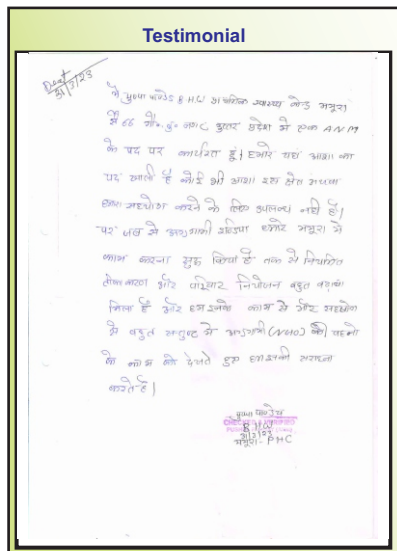 Testimonial
Date
31/3/23
मै पुष्पा पाण्डेय B.H.W प्राथमिक स्वास्थ्य केन्द्र मथुरा
मे 66 उत्तर प्रदेश मे एक ANM
के पद पर कार्यरत हूं। हमारे यहां आशा का
पद खाली है कोई भी आशा इस क्षेत्र मे
हमारा सहयोग करने के लिए उपलब्ध नही है।
पर जब से अग्रगामी इंडिया हमारे मथुरा मे
काम करना सुरू किया है तब से नियमित
टीकाकरण और परिवार नियोजन बहुत बढ़ावा
मिला है और हम इनके काम से और सहयोग
से बहुत सन्तुष्ट है (NGO) की बहनो
के काम को देखते हुए हम इनकी सराहना
करते है।
पुष्पा पाण्डेय
B HW
31/3/23
मथुरा- PHC